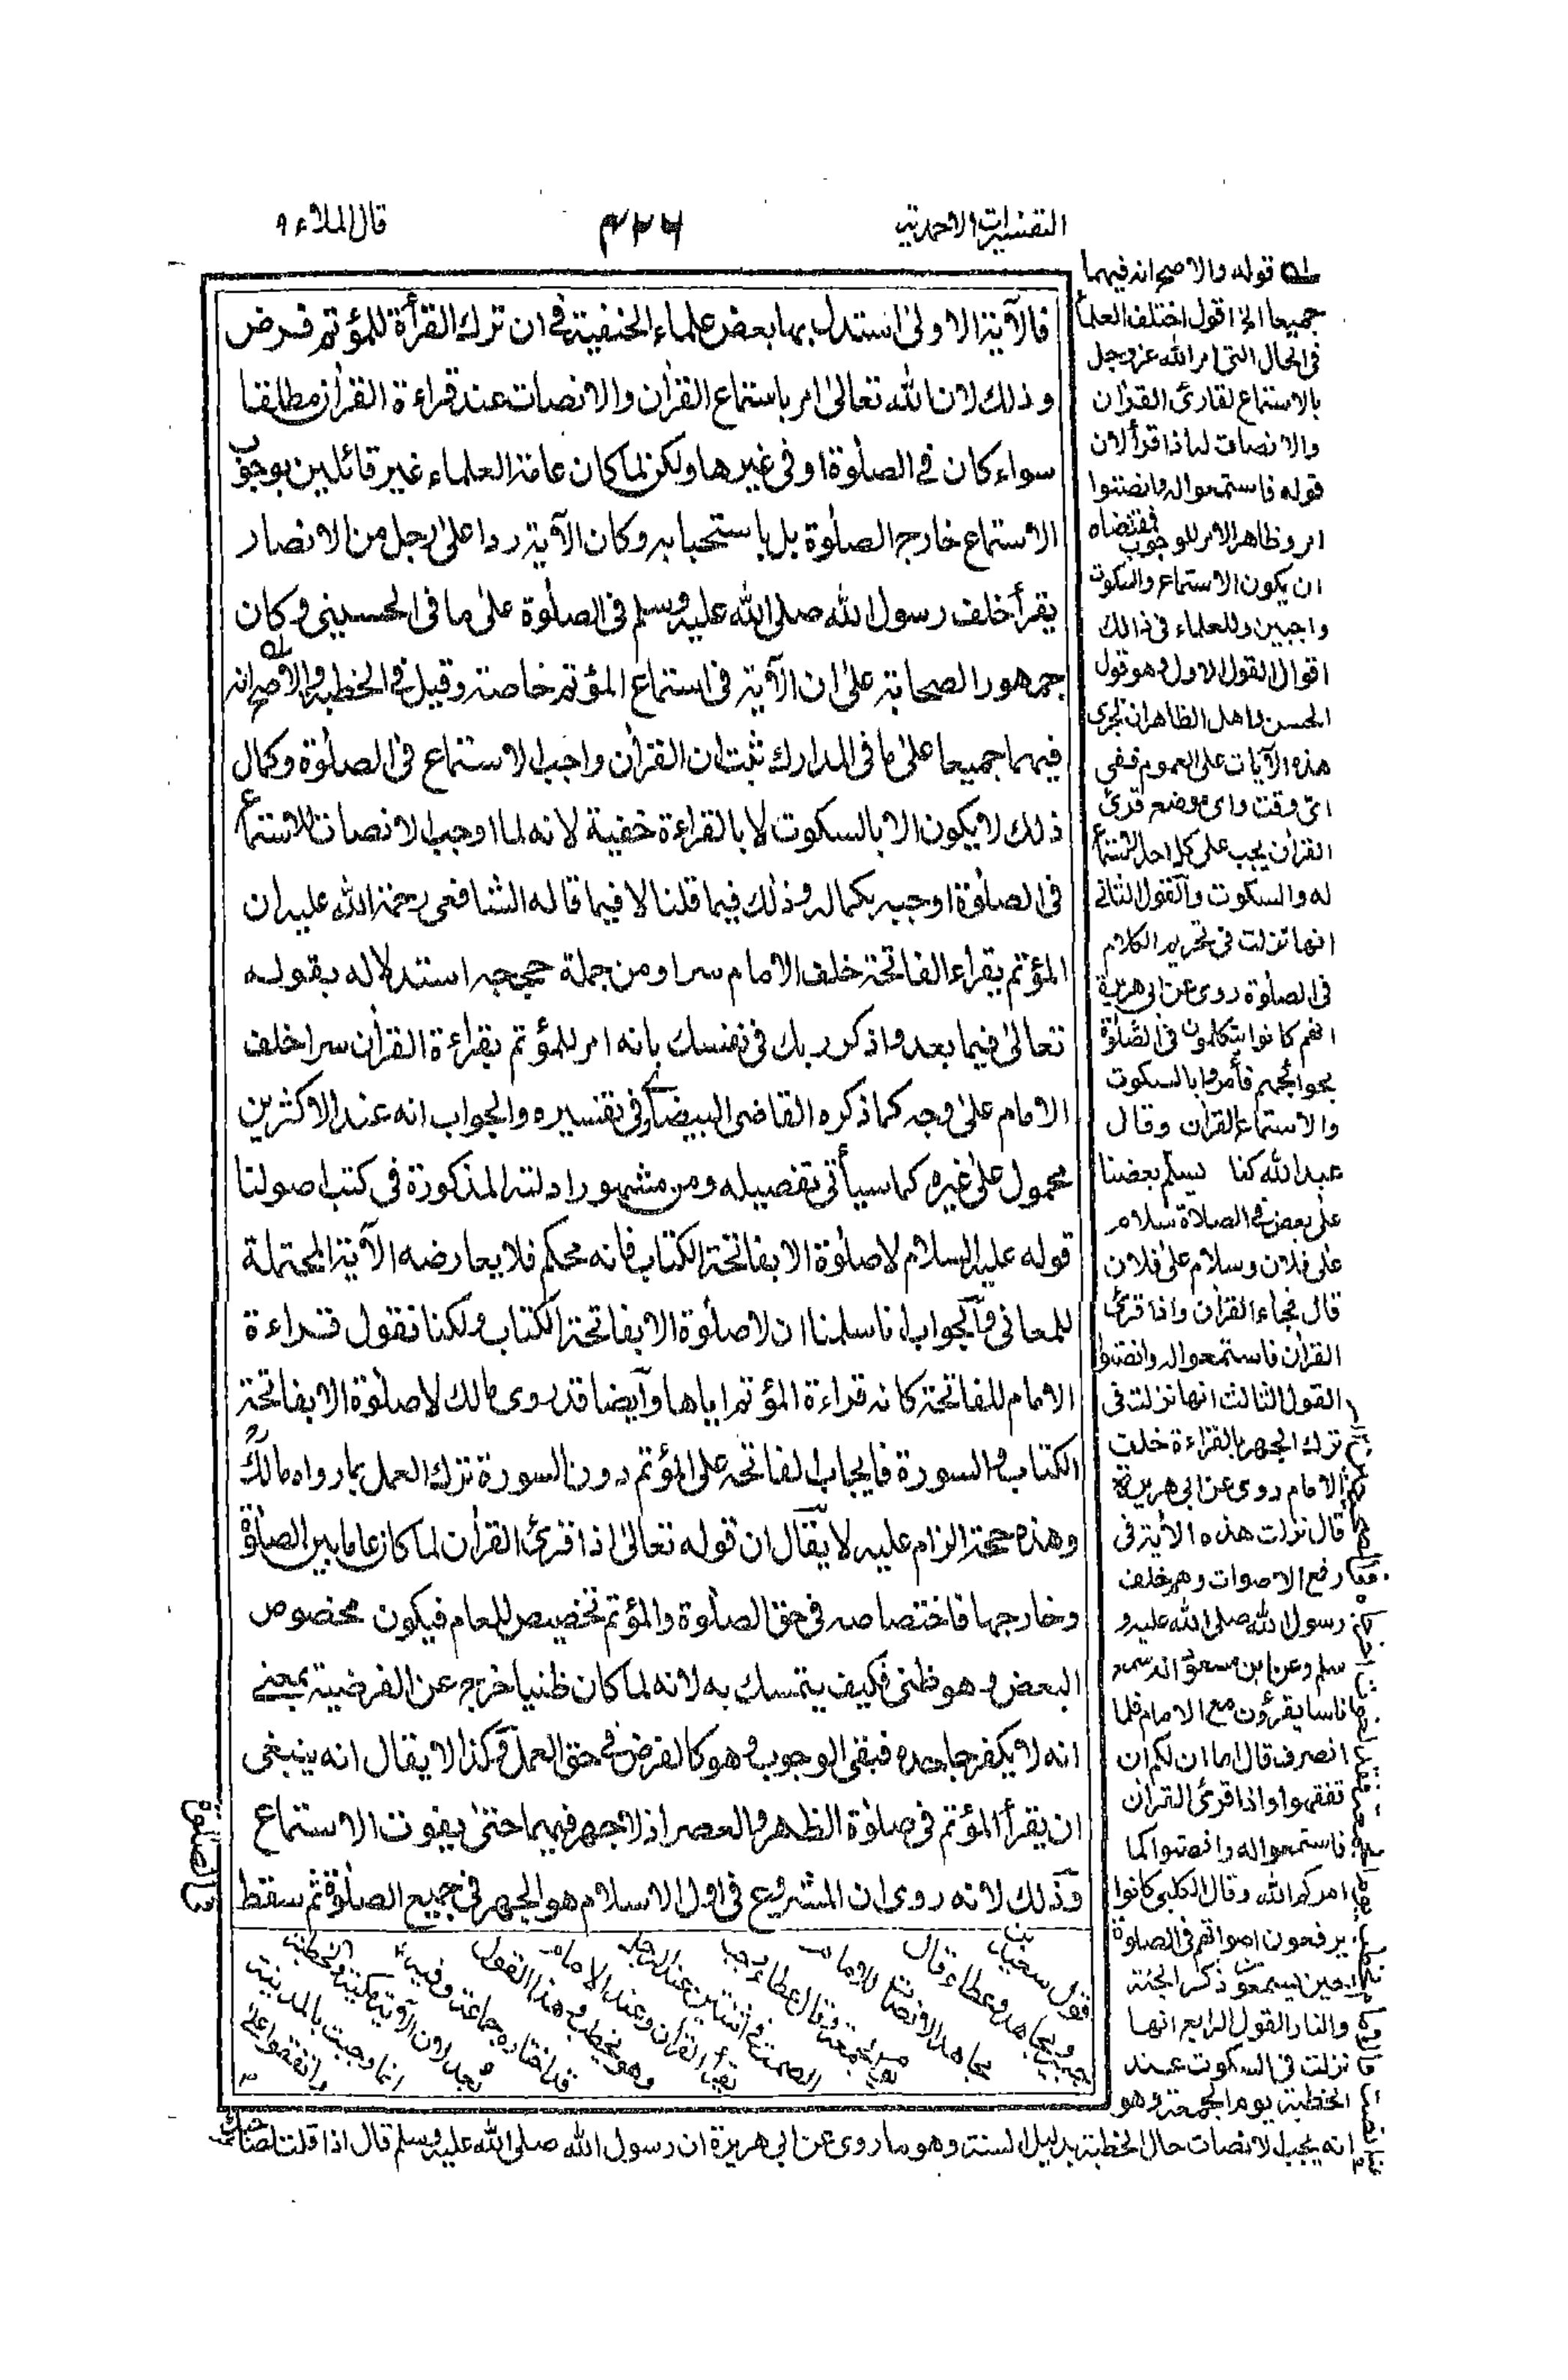 التفسيرات الاحمدية
٤٢٦
قال الملاء ٩
فالآية الاولىٰ استدل بها بعض علماء الحنفية فى ان ترك القرأة للمؤتم فرض
وذلك لان الله تعالىٰ امر باستماع القرأن والانصات عند قراءة القرأن مطلقا
سواء كان فى الصلوٰة او فى غيرها ولكن لما كان عامة العلماء غير قائلين بوجوب
الاستماع خارج الصلوٰة بل باستحبابه وكان الآية ردا علىٰ رجل من الانصار
يقرأ خلف رسول الله صلى الله عليه وسلم فى الصلوٰة علىٰ ما فى الحسينى وكان
جمهور الصحابة علىٰ ان الآية فى استماع المؤتم خاصة وقيل فى الخطبة والاصح انه
فيهما جميعا علىٰ ما فى المدارك ثبت ان القرأن واجب الاستماع فى الصلوٰة وكمال
ذلك لا يكون الا بالسكوت لا بالقراءة خفية لانه لما اوجب الانصات للاستماع
فى الصلوٰة اوجبه بكماله وذلك فيما قلنا لا فيما قاله الشافعى رحمة الله عليه ان
المؤتم يقراء الفاتحة خلف الامام سرا ومن جملة حججه استدلاله بقوله
تعالىٰ فيما بعد واذكر ربك فى نفسك بانه امر للمؤتم بقراءة القرأن سرا خلف
الامام علىٰ وجه كما ذكره القاضى البيضاوى فى تفسيره والجواب انه عند الاكثرين
محمول علىٰ غيره كما سيأتى تفصيله ومن مشهور ادلته المذكورة فى كتب اصولنا
قوله عليه السلام لا صلوٰة الا بفاتحة الكتاب فانه محكم فلا يعارضه الآية المحتملة
للمعانى والجواب انا سلمنا ان لا صلوٰة الا بفاتحة الكتاب ولكنا نقول قراءة
الامام للفاتحة كانه قراءة المؤتم اياها وايضا قد روى مالك لا صلوٰة الا بفاتحة
الكتاب والسورة فايجاب الفاتحه على المؤتم دون السورة ترك العمل بما رواه مالك
وهذه حجة الزام عليه لا يقال ان قوله تعالىٰ اذا قرئ القرأن لما كان عاما بين الصلوٰة
وخارجها فاختصاصه فى حق الصلوٰة والمؤتم تخصيص للعام فيكون مخصوص
البعض وهو ظنى فكيف يتمسك به لانه لما كان ظنيا خرج عن الفرضية بمعنے
انه لا يكفر جاحده فبقى الوجوب وهو كالفرض فى حق العمل وكذا لا يقال انه ينبغى
ان يقرأ المؤتم فى صلوٰة الظهر والعصر اذ لا جهر فيهما حتىٰ يفوت الاستماع
وذلك لانه روى ان المشروع فى اول الاسلام هو الجهر فى جميع الصلوٰة ثم سقط
فى الصلوٰة
قوله والاصح انه فيهما
جميعا الخ اقول اختلف العلماء
فى الحال التى امر الله عز وجل
بالاستماع لقارئ القرأن
والانصات له اذا قرأ لان
قوله فاستمعوا له وانصتوا
امر وظاهر الامر للوجوب فمقتضاه
ان يكون الاستماع والسكوت
واجبين وللعلماء فى ذالك
اقوال القول الاول وهو قول
الحسن واهل الظاهر ان تجرى
هذه الآيات على العموم ففى
اى وقت واى موضع قرئ
القرأن يجب على كل احد الاستماع
له والسكوت والقول الثانى
انها نزلت فى تحريم الكلام
فى الصلوٰة روى عن ابى هريرة
انهم كانوا يتكلمون فى الصلوٰة
بحوائجهم فأمروا بالسكوت
والاستماع القرأن وقال
عبد الله كنا يسلم بعضنا
على بعض فى الصلاة سلام
علىٰ فلان وسلام علىٰ فلان
قال فجاء القرأن واذا قرئ
القرأن فاستمعوا له وانصتوا
القول الثالث انها نزلت فى
ترك الجهر بالقراءة خلف
الامام روى عن ابى هريرة
قال نزلت هذه الأية فى
رفع الاصوات وهم خلف
رسول الله صلى الله عليه و
سلم وعن ابن مسعود انه سمع
ناسا يقرؤن مع الامام فلما
انصرف قال اما ان لكم ان
تفقهوا واذا قرئ القرأن
فاستمعوا له وانصتوا كما
امركم الله وقال الكلبى كانوا
يرفعون اصواتهم فى الصلوٰة
حين يسمعون ذكر الجنة
والنار القول الرابع انها
نزلت فى السكوت عند
الخطبة يوم الجمعة وهو
قول سعيد بن
جبير ومجاهد وعطاء وقال
مجاهد الانصات للامام
يوم الجمعة وقال عطاء وجب
الصمت فى اثنتين عند الرجل
يقرأ القرأن وعند الامام
وهو يخطب وهذا القول
قد اختاره جماعة وفيه
بعد لان الآية مكية والخطبة
انما وجبت بالمدينة
واتفقوا علىٰ
انه يجب الانصات حال الخطبة بدليل السنة وهو ما روى عن ابى هريرة ان رسول الله صلى الله عليه وسلم قال اذا قلت لصاحبك